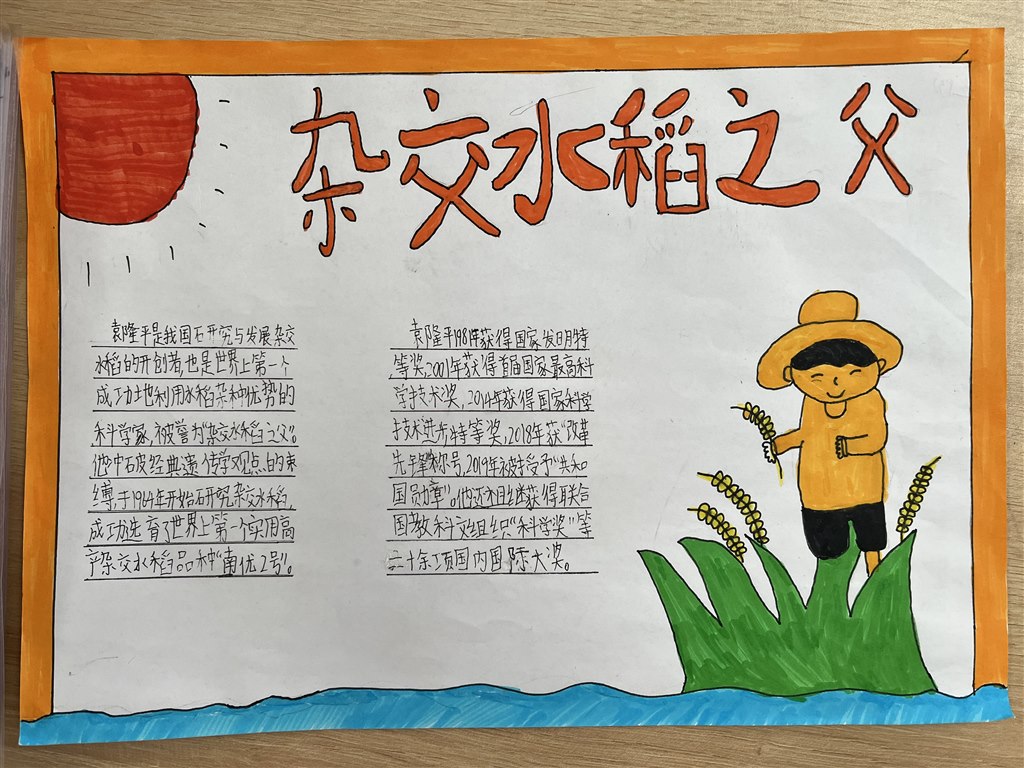 杂交水稻之父
袁隆平是我国石开究与发展杂交
水稻的开创者,也是世界上第一个
成功地利用水稻杂种优势的
科学家,被誉为"杂交水稻之父"。
他冲破经典遗传学观点的束
缚,于1964年开始研究杂交水稻,
成功选育了世界上第一个实用高
产杂交水稻品种"南优2号"。
袁隆平1981年获得国家发明特
等奖,2001年获得首届国家最高科
学技术奖,2014年获得国家科学
技术进步特等奖,2018年获"改革
先锋"称号,2019年被授予"共和
国勋章"。他还相继获得联合
国教科文组织"科学奖"等
二十余项国内国际大奖。